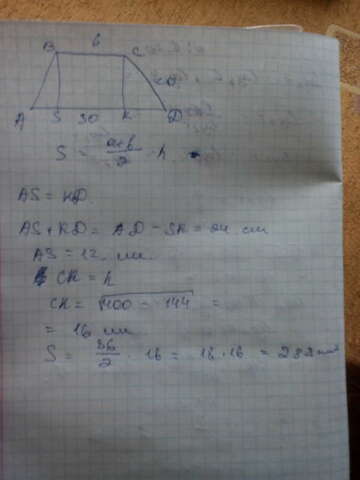 6
B C
20
A S 30 K D
S = a+b/2 · h
AS = KD.
AS + KD = AD - SK = 24 cm
AS = 12 см.
CK = h
CK = √400 - 144 =
= 16 см
S = 36/2 · 16 = 18 · 16 = 288 см²